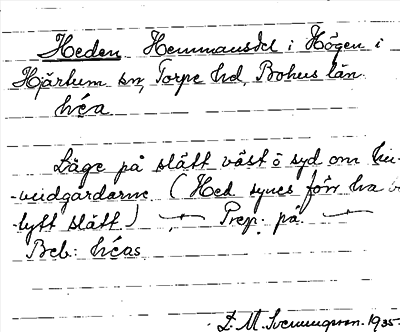 Heden Hemmansdel i Högen i
Hjärtum sn, Torpe hd, Bohus län
héa
Läge på slätt väst o syd om hu-
vudgårdarne (Hed synes förr ha
tytt slätt.) — Prep: på. —
Beb: héas
D. M. Svenningsson. 1935.